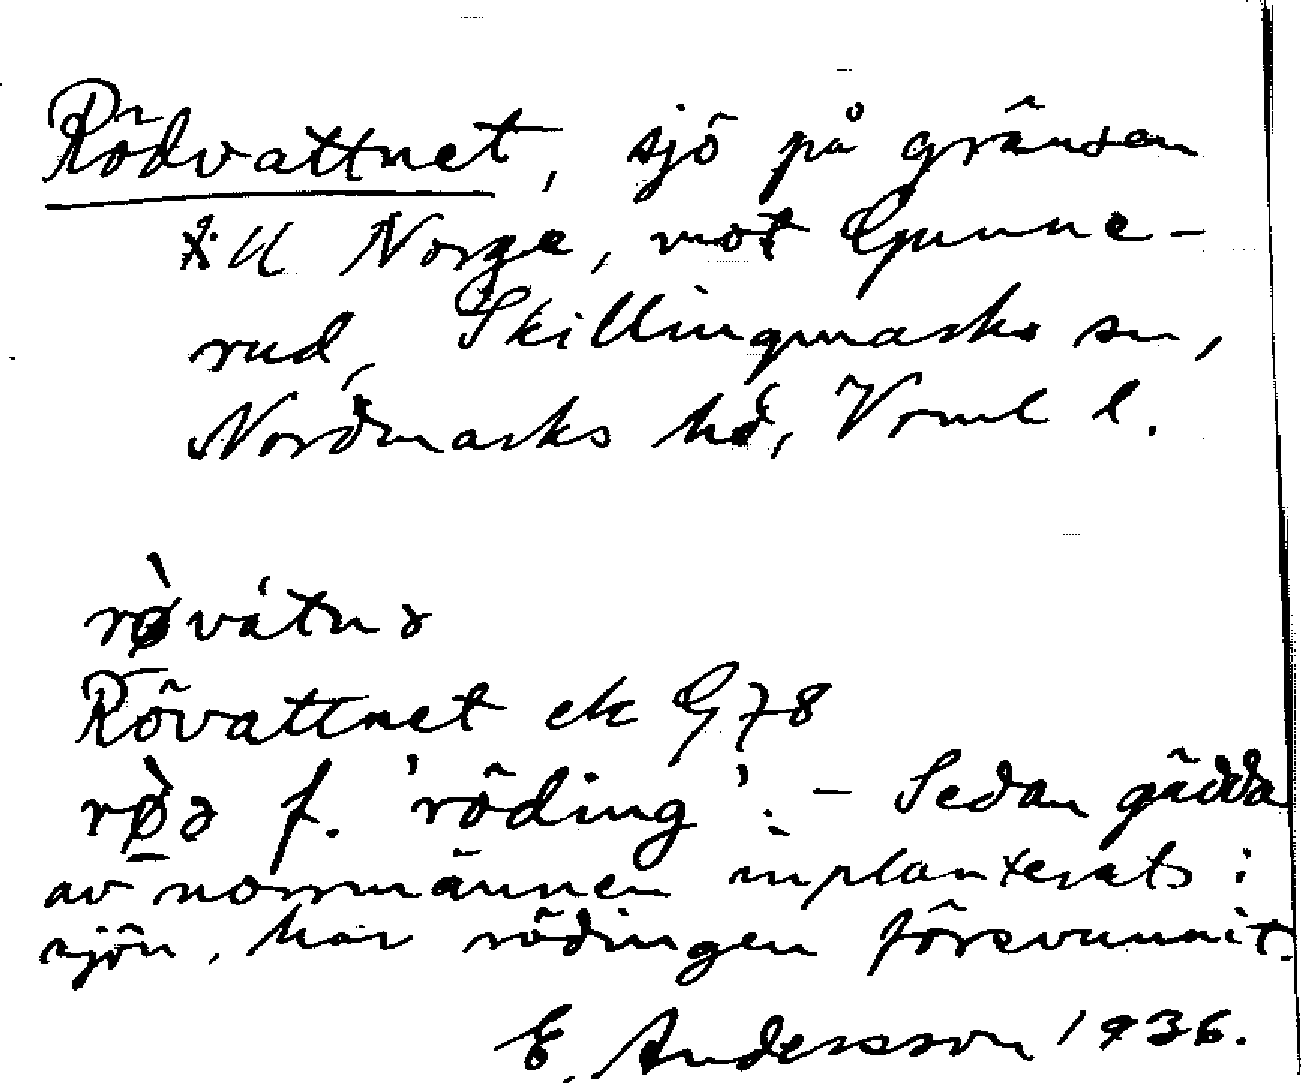 Rödvattnet, sjö på gränsen
till Norge, mot Gunne-
rud, Skillingmarks sn,
Nordmarks hd, Vrml l.
rø̀vátnə
Rövattnet ek G 78
rø̀ə f. 'röding'. – Sedan gädda
av norrmännen inplanterats i
sjön, har rödingen försvunnit.
E. Andersson 1936.